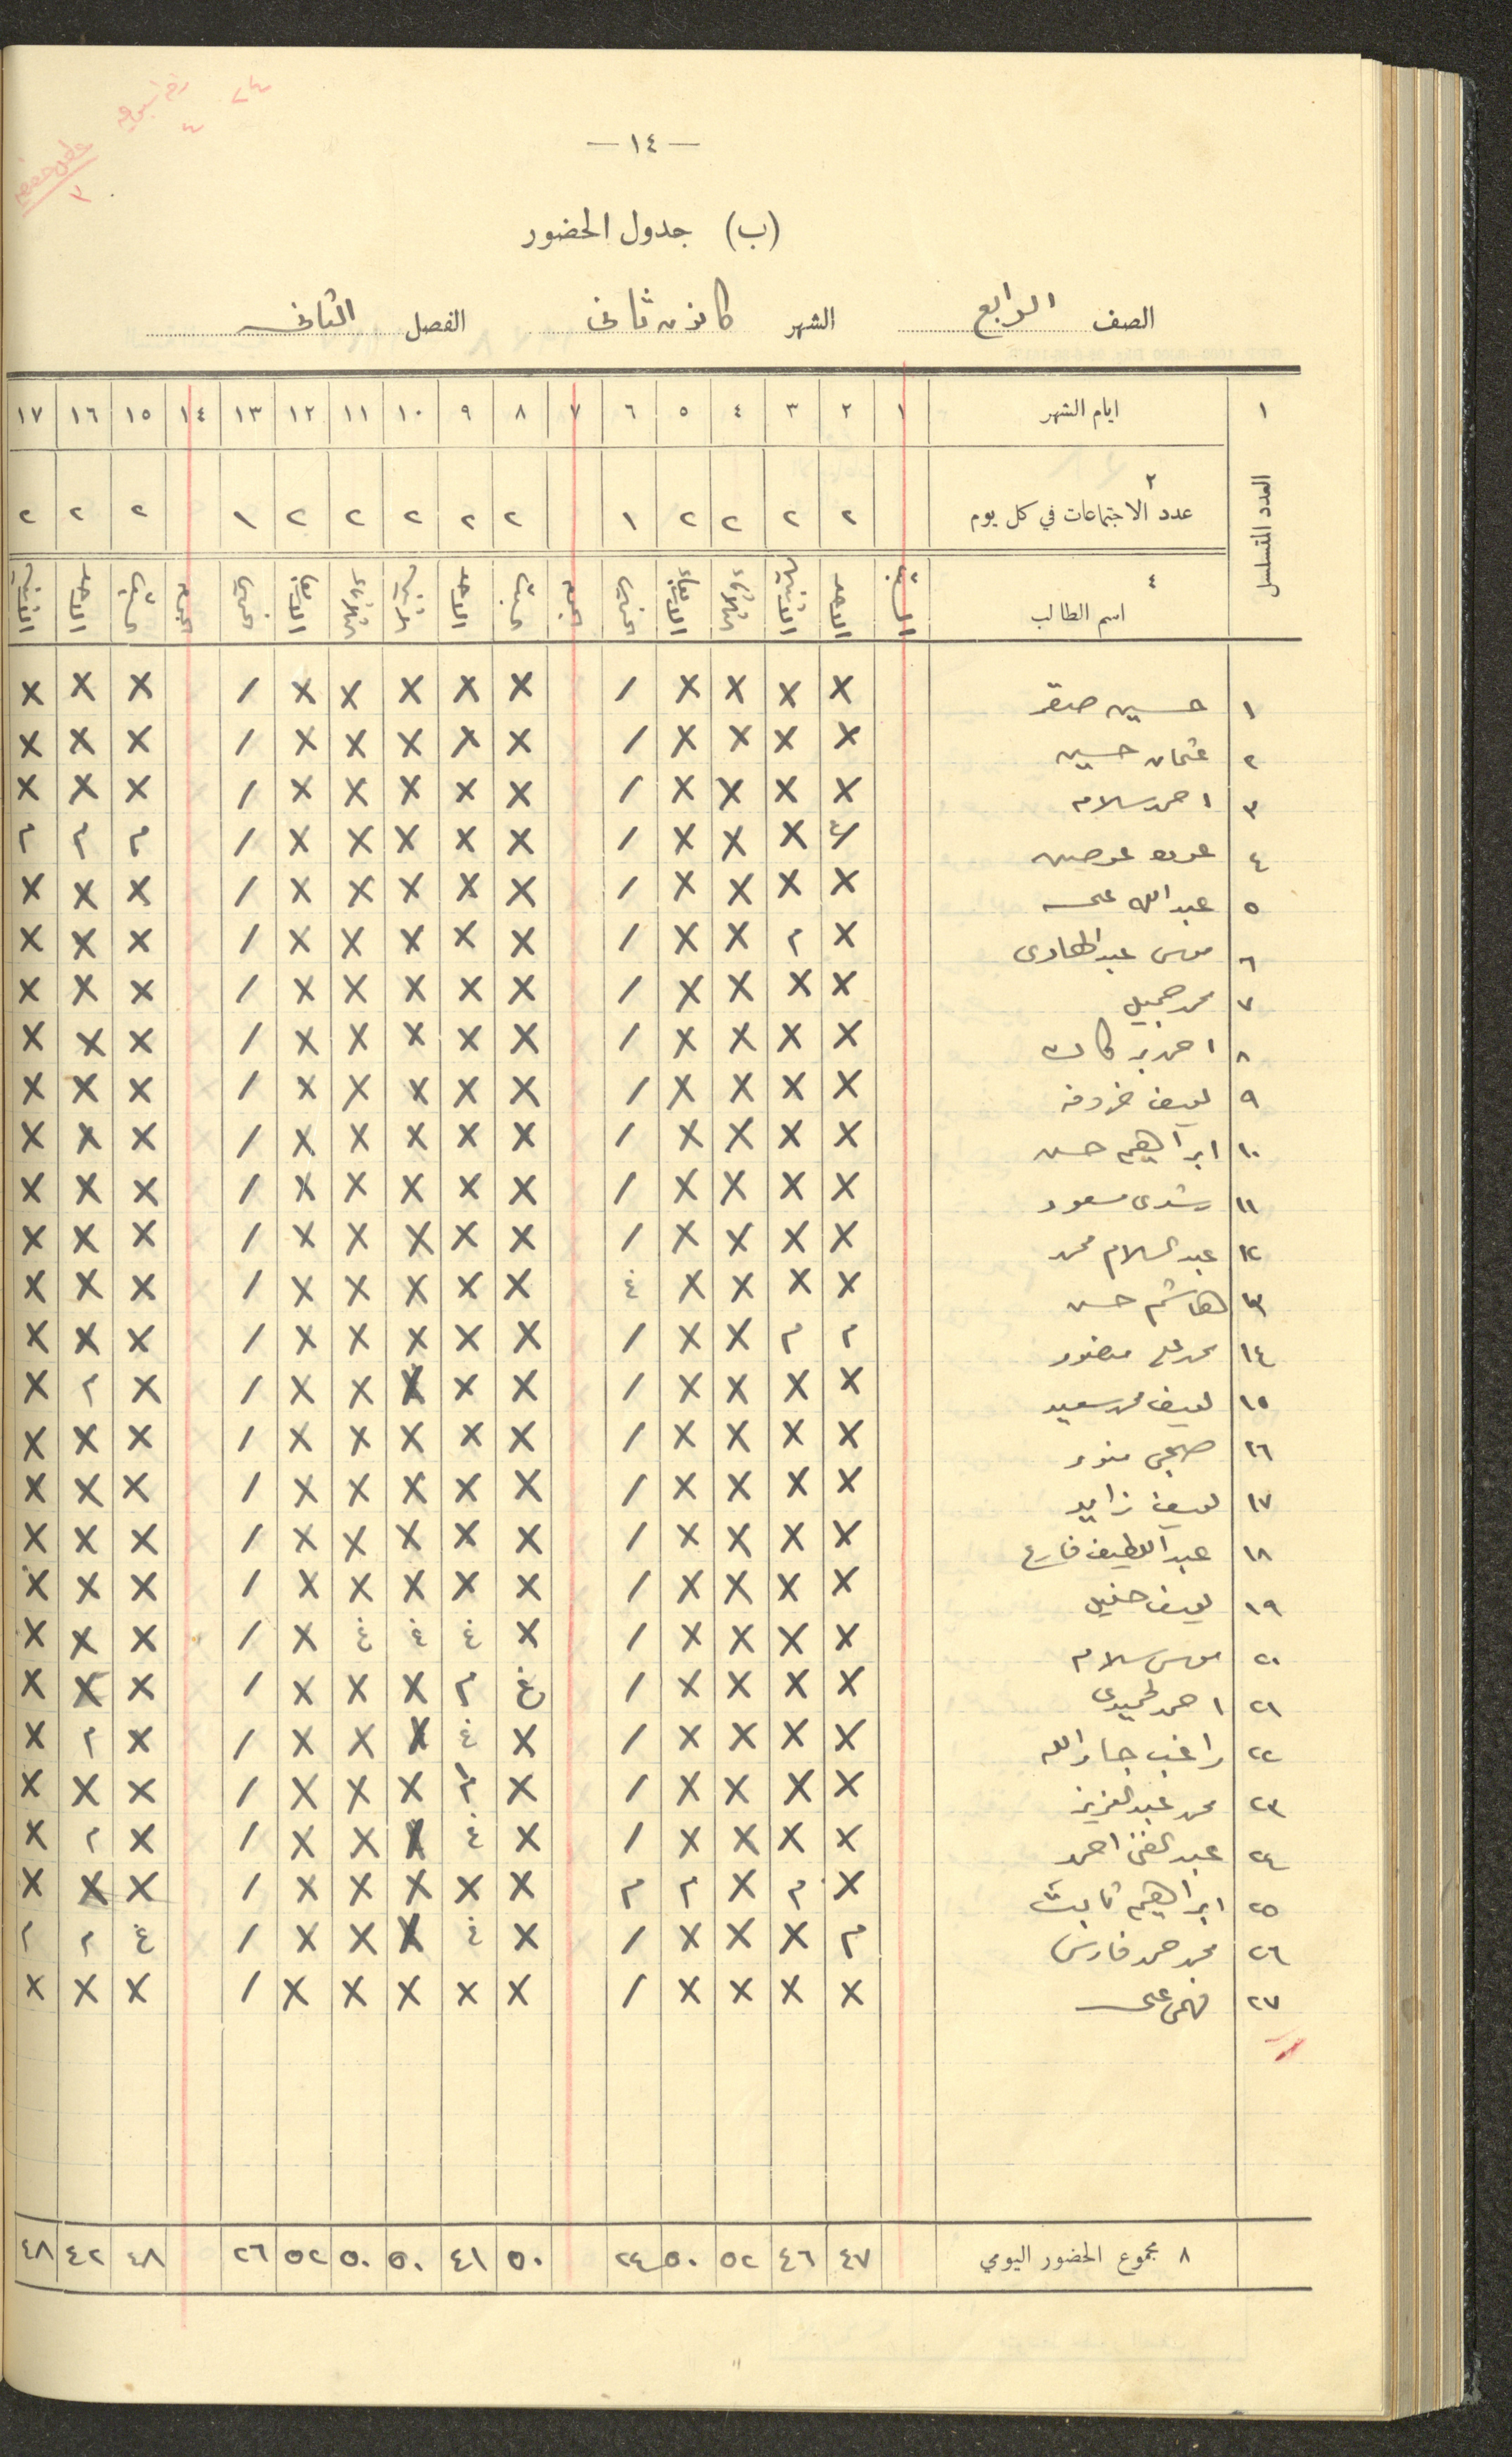 — ١٤ —
(ب) جدول الحضور
الصف الرابع الشهر كانون ثاني الفصل الثاني
١ ايام الشهر ١ ٢ ٣ ٤ ٥ ٦ ٧ ٨ ٩ ١٠ ١١ ١٢ ١٣ ١٤ ١٥ ١٦ ١٧
العدد المتسلسل
٢ عدد الاجتماعات في كل يوم ٢ ٢ ٢ ٢ ١ ٢ ٢ ٢ ٢ ٢ ١ ٢ ٢ ٢
٤ اسم الطالب السبت الاحد الاثنين الثلاثاء الاربعاء الخميس الجمعة السبت الاحد الاثنين الثلاثاء الاربعاء الخميس الجمعة السبت الاحد الاثنين
١ حسين صقر X X X X / X X X X X / X X X
٢ عثمان حسين X X X X / X X X X X / X X X
٣ احمد سلامه X X X X / X X X X X / X X X
٤ X X X / X X X X X / م م م
٥ عبد الله علي X X X X / X X X X X / X X X
٦ موسى عبد الهادي X م X X / X X X X X / X X X
٧ محمد جميل X X X X / X X X X X / X X X
٨ احمد بركات X X X X / X X X X X / X X X
٩ يوسف X X X X / X X X X X / X X X
١٠ ابراهيم حسن X X X X / X X X X X / X X X
١١ رشدي مسعود X X X X / X X X X X / X X X
١٢ عبد السلام محمد X X X X / X X X X X / X X X
١٣ هاشم حسن X X X X غ X X X X X / X X X
١٤ محمد علي منصور م م X X / X X X X X / X X X
١٥ يوسف محمد سعيد X X X X / X X X X X / X م X
١٦ صبحي منور X X X X / X X X X X / X X X
١٧ يوسف زايد X X X X / X X X X X / X X X
١٨ عبد اللطيف فارع X X X X / X X X X X / X X X
١٩ يوسف خليل X X X X / X X X X X / X X X
٢٠ موسى سلامه X X X X / X غ غ غ X / X X X
٢١ احمد الحميدي X X X X / غ م X X X / X X X
٢٢ راغب جار الله X X X X / X غ X X X / X م X
٢٣ محمد عبد العزيز X X X X / X م X X X / X X X
٢٤ عبد الغني احمد X X X X / X غ X X X / X م X
٢٥ ابراهيم ثابت X م X م م X X X X X / X X X
٢٦ محمد حمد فارس م X X X / X غ X X X / غ م م
٢٧ فهمي علي X X X X / X X X X X / X X X
٨ مجموع الحضور اليومي ٤٧ ٤٦ ٥٢ ٥٠ ٢٤ ٥٠ ٤١ ٥٠ ٥٠ ٥٢ ٢٦ ٤٨ ٤٢ ٤٨